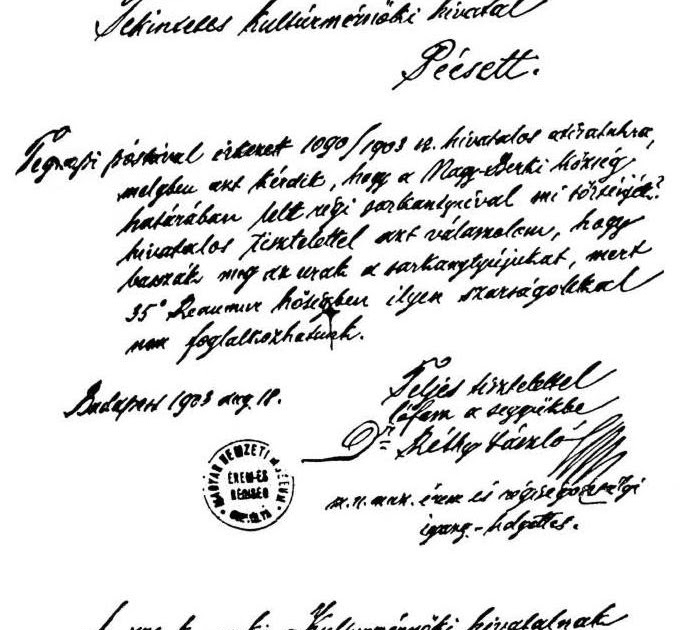 Tekintetes Kultúrmérnöki hivatal
Pécsett.
Tegnapi póstával érkezett 1090/1903 sz. hivatalos átiratukra,
melyben azt kérdik, hogy a Nagy-Berki község
határában lelt régi sarkantyúval mi történjék?
hivatalos tisztelettel azt válaszolom, hogy
basszák meg az urak a sarkantyújukat, mert
35° Reaumur hőségben ilyen szarságokkal
nem foglalkozhatunk.
Budapest 1903 aug. 18.
Teljes tisztelettel
lófasz a seggükbe
Dr Réthy László
m. n. muz. érem és régiségosztályi
igazg.-helyettes.
MAGYAR NEMZETI MUZEUM
ÉREM-ÉS
RÉGISÉG
Kulturmérnöki hivatalnak